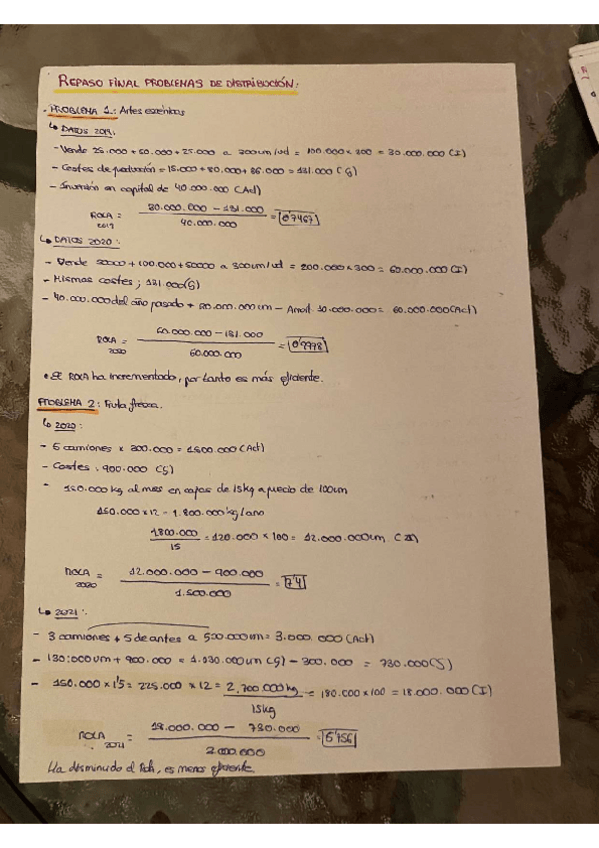 REPASO FINAL PROBLEMAS DE DISTRIBUCIÓN:
- PROBLEMA 1: Artes escénicas
↳ DATOS 2019:
- Vende 25.000 + 50.000 + 25.000 a 300um/ud = 100.000 x 300 = 30.000.000 (I)
- Costes de producción = 15.000 + 80.000 + 36.000 = 131.000 (G)
- Inversión en capital de 40.000.000 (Act)
ROCA 2019 = 30.000.000 - 131.000 / 40.000.000 = 0'7467
↳ DATOS 2020:
- Vende 50000 + 100.000 + 50000 a 300um/ud = 200.000 x 300 = 60.000.000 (I)
- Mismos costes; 131.000 (G)
- 40.000.000 del año pasado + 30.000.000um - Amort. 10.000.000 = 60.000.000 (Act)
ROCA 2020 = 60.000.000 - 131.000 / 60.000.000 = 0'9978
• El ROCA ha incrementado, por tanto es más eficiente.
PROBLEMA 2: Fruta fresca.
↳ 2020:
- 5 camiones x 300.000 = 1.500.000 (Act)
- Costes: 900.000 (G)
- 150.000 kg al mes en cajas de 15kg a precio de 100um
150.000 x 12 = 1.800.000 kg/ano
1800.000 / 15 = 120.000 x 100 = 12.000.000um (I)
ROCA 2020 = 12.000.000 - 900.000 / 1.500.000 = 7'4
↳ 2021:
- 3 camiones + 5 de antes a 500.000um = 3.000.000 (Act)
- 130.000um + 900.000 = 1.030.000um (G) - 300.000 = 730.000 (G)
- 150.000 x 1'5 = 225.000 x 12 = 2.700.000 kg / 15kg = 180.000 x 100 = 18.000.000 (I)
ROCA 2021 = 18.000.000 - 730.000 / = 5'756
Ha disminuido el Roca, es menos eficiente.